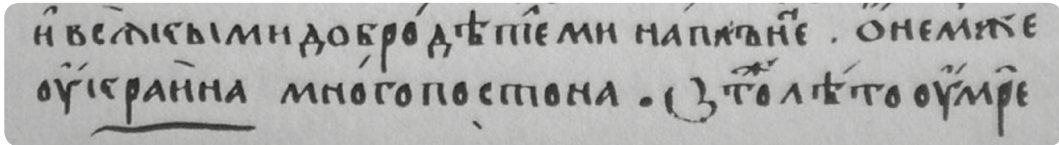 и҆ всѧкыми добродѣтеми наплънѐ . ѻ҆немже
оу҆краи́на мно́гопостона . В то лѣ́то оу҆мре